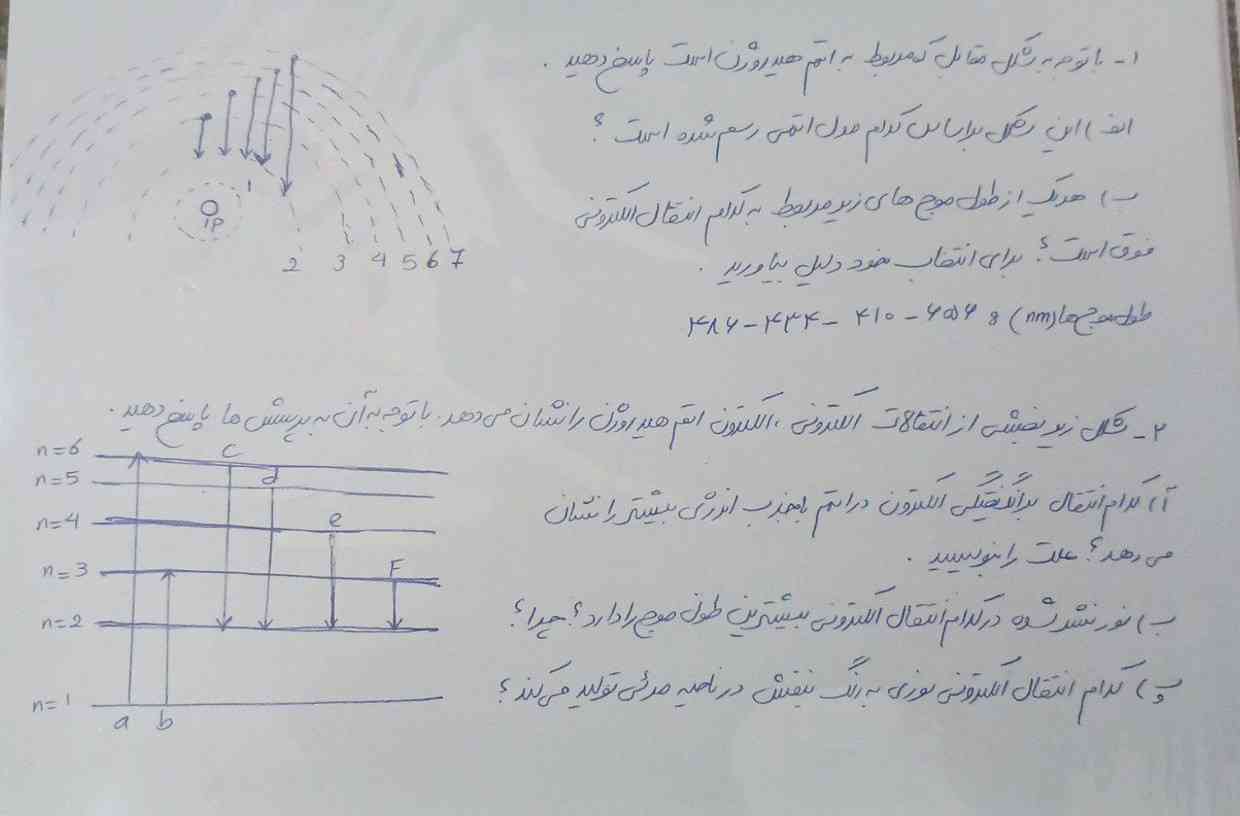 ۱- باتوجه به شکل مقابل که مربوط به اتم هیدروژن است پاسخ دهید .
الف) این شکل براساس کدام مدل اتمی رسم شده است ؟
ب) هریک از طول موج های زیر مربوط به کدام انتقال الکترونی
فوق است ؟ برای انتخاب خود دلیل بیاورید .
طول موج ها (nm) : ۶۵۶ - ۴۱۰ - ۴۳۴ - ۴۸۶
1p
1
2 3 4 5 6 7
۲- شکل زیر بخشی از انتقالات الکترونی ، الکترون اتم هیدروژن را نشان می دهد. باتوجه به آن به پرسش ها پاسخ دهید .
آ) کدام انتقال برانگیختگی الکترون در اتم با جذب انرژی بیشتر را نشان
می دهد؟ علت را بنویسید .
ب) نور نشر شده در کدام انتقال الکترونی بیشترین طول موج را دارد ؟ چرا ؟
پ) کدام انتقال الکترونی نوری به رنگ بنفش در ناحیه مرئی تولید می کند ؟
n=6
n=5
n=4
n=3
n=2
n=1
c
d
e
F
a b